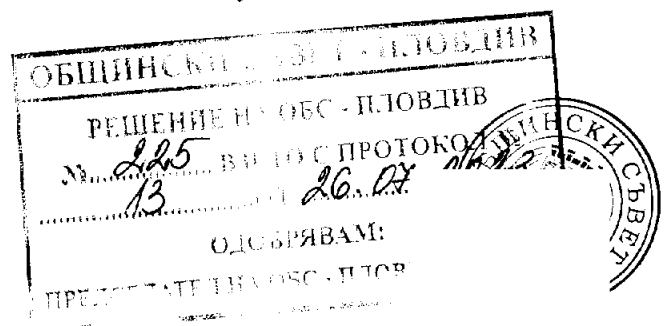 ОБЩИНСКИ СЪВЕТ - ПЛОВДИВ
РЕШЕНИЕ НА ОБС - ПЛОВДИВ
№ 225 ВЗЕТО С ПРОТОКОЛ
13 ОТ 26.07
ОДОБРЯВАМ:
ПРЕДСЕДАТЕЛ НА ОБС - ПЛОВ
ОБЩИНСКИ СЪВЕТ